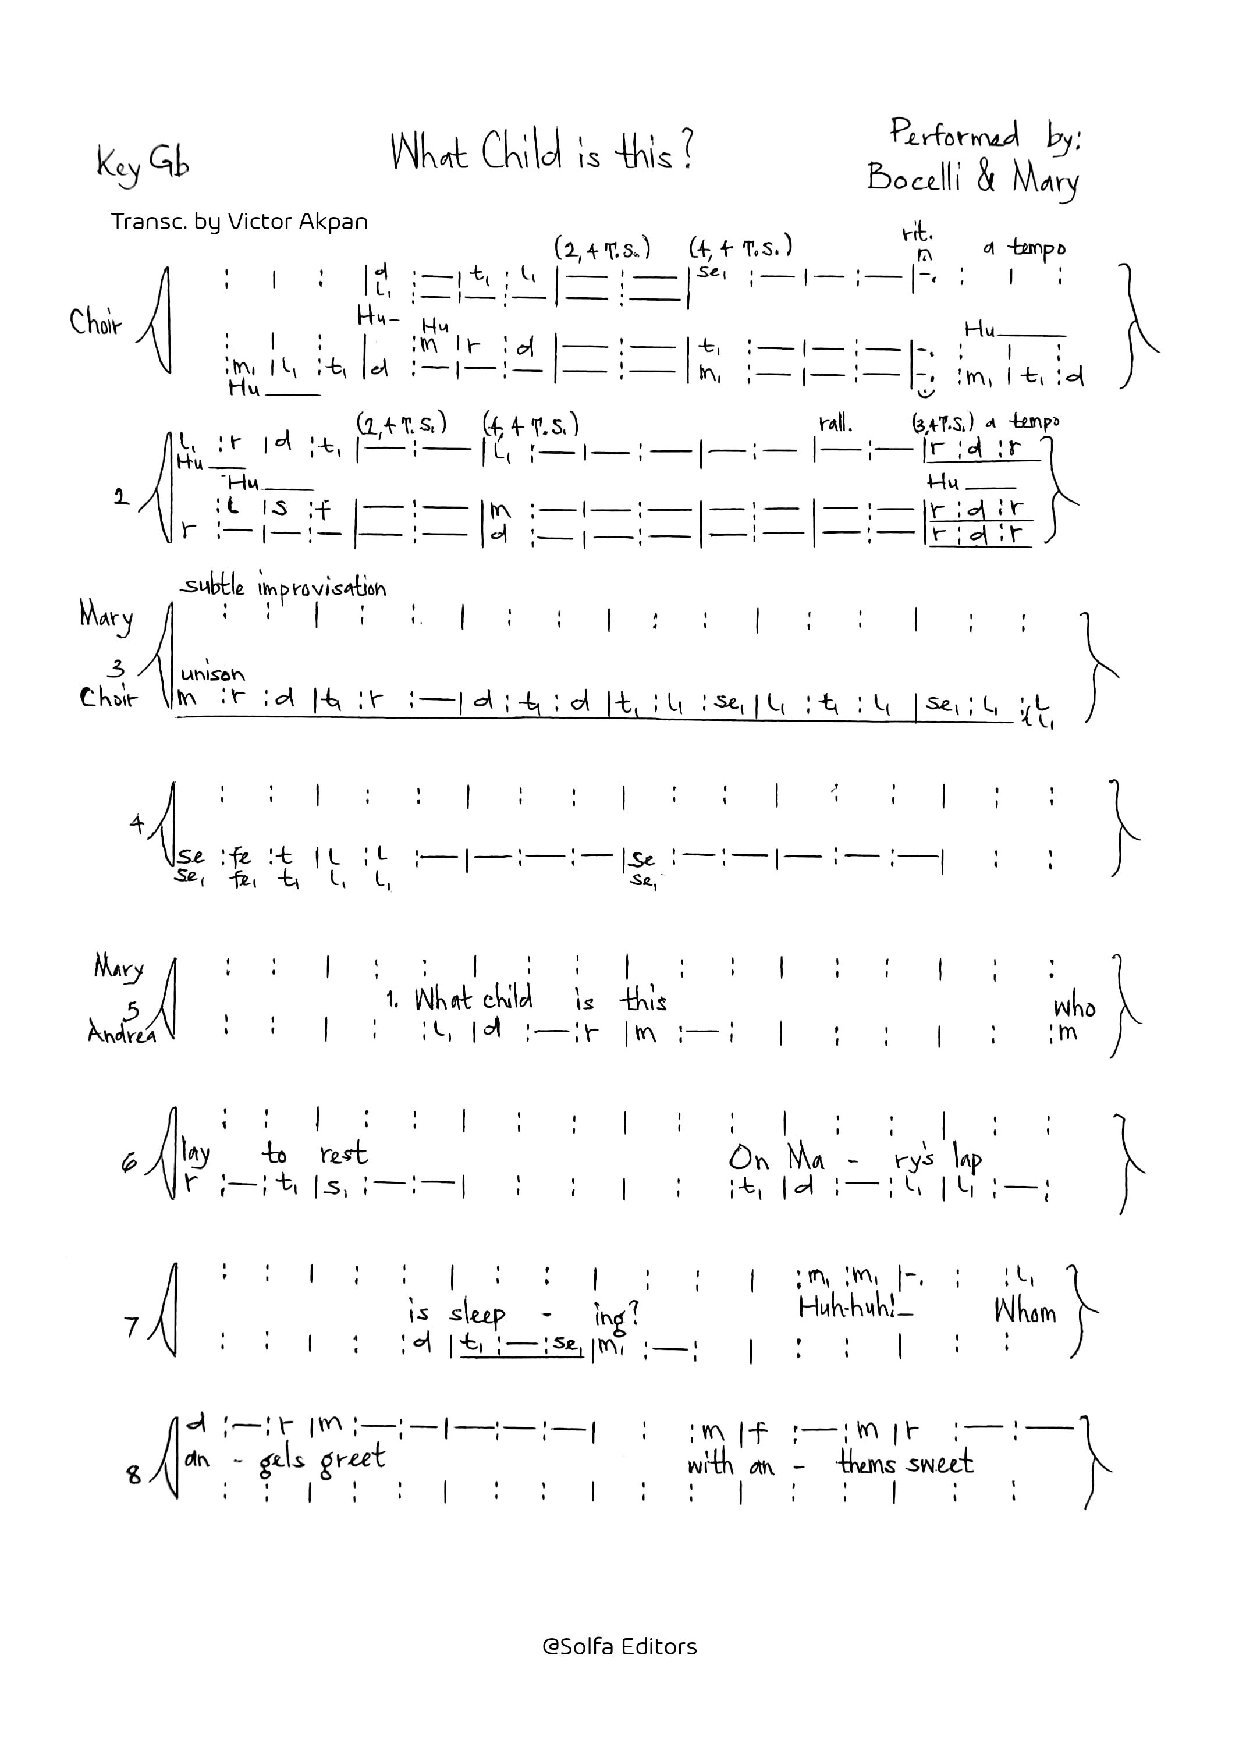 Key Gb
What Child is this?
Performed by:
Bocelli & Mary
Transc. by Victor Akpan
(2,4 T.S.) (4,4 T.S.) rit. a tempo
: | : |d :—|t₁ : l₁ |—:—|se₁ :—|—:—|-. : | :
Choir l₁ :—|—:—|—:—|
Hu- Hu Hu
: | : | :m |r :d |—:—|t₁ :—|—:—|-. : | :
:m₁ |l₁ :t₁ |d :—|—:—|—:—|m₁ :—|—:—|-. :m₁ |t₁ :d
Hu
(2,4 T.S.) (4,4 T.S.) rall. (3,4 T.S.) a tempo
l₁ :r |d :t₁ |—:—|l₁ :—|—:—|—:—|—:—|r :d :r
Hu
Hu Hu
2 :l |s :f |—:—|m :—|—:—|—:—|—:—|r :d :r
r :—|—:—|—:—|d :—|—:—|—:—|—:—|r :d :r
subtle improvisation
Mary : : | : : | : : | : : | : : | : :
3 unison
Choir m :r :d |t₁ :r :—|d :t₁ :d |t₁ :l₁ :se₁ |l₁ :t₁ :l₁ |se₁ :l₁ :l
l₁
: : | : : | : : | : : | : : | : :
4
se :fe :t |l :l :—|—:—:—|se :—:—|—:—:—| : :
se₁ fe₁ t₁ l₁ l₁ se₁
Mary : : | : : | : : | : : | : : | : :
5 1. What child is this Who
Andrea : : | : :l₁ |d :—:r |m :—: | : : | : :m
: : | : : | : : | : : | : : | : :
6 lay to rest On Ma - ry's lap
r :—:t₁ |s₁ :—:—| : : | : :t₁ |d :—:l₁ |l₁ :—:
: : | : : | : : | : : | :m₁ :m₁ |-. : :l₁
7 is sleep - ing? Huh-huh! Whom
: : | : :d |t₁ :—:se₁ |m₁ :—: | : : | : :
d :—:r |m :—:—|—:—:—| : :m |f :—:m |r :—:—
8 an - gels greet with an - thems sweet
: : | : : | : : | : : | : : | : :
@Solfa Editors